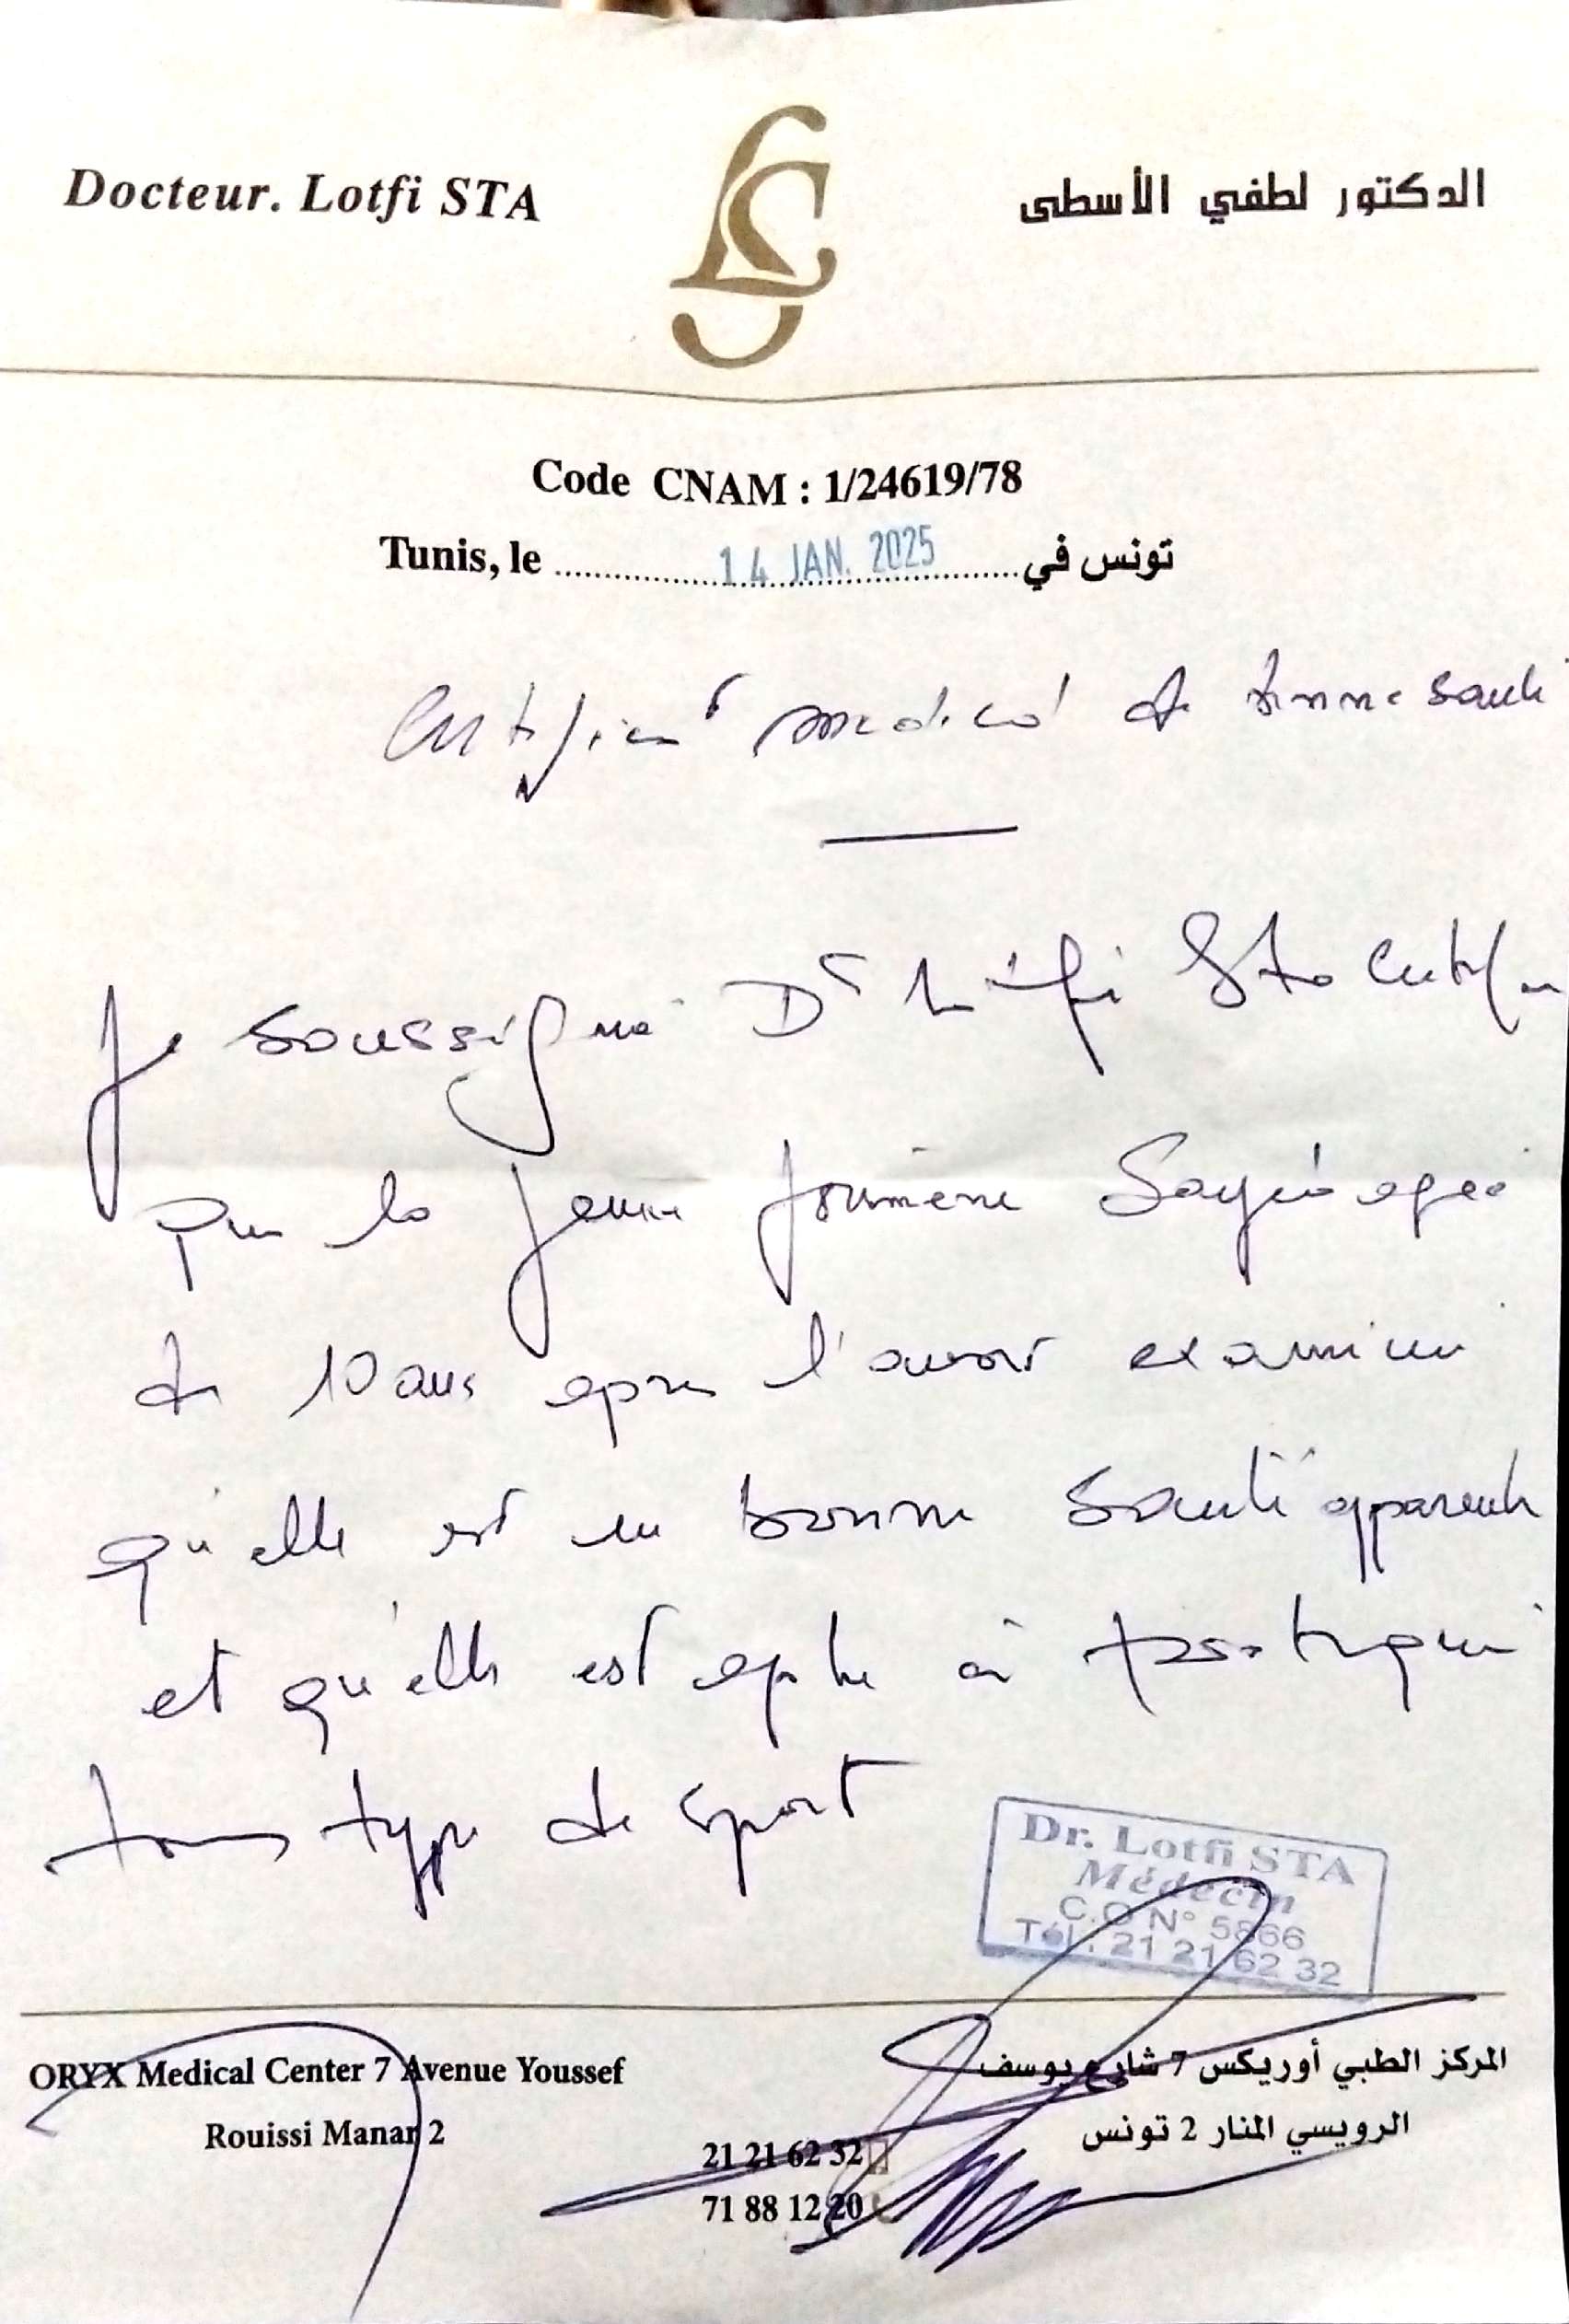 Docteur. Lotfi STA
الدكتور لطفي الأسطى
Code CNAM : 1/24619/78
Tunis, le 14 JAN. 2025 تونس في
Certificat médical de bonne santé
Je soussigné Dr Lotfi Sta certifie
que la jeune Joumene âgée
de 10 ans après l'avoir examiné
qu'elle est en bonne santé apparente
et qu'elle est apte à pratiquer
tous type de sport
Dr. Lotfi STA
Médecin
C.O N° 5866
Tél : 21 21 62 32
ORYX Medical Center 7 Avenue Youssef
Rouissi Manar 2
المركز الطبي أوريكس 7 شارع يوسف
الرويسي المنار 2 تونس
21 21 62 32
71 88 12 20